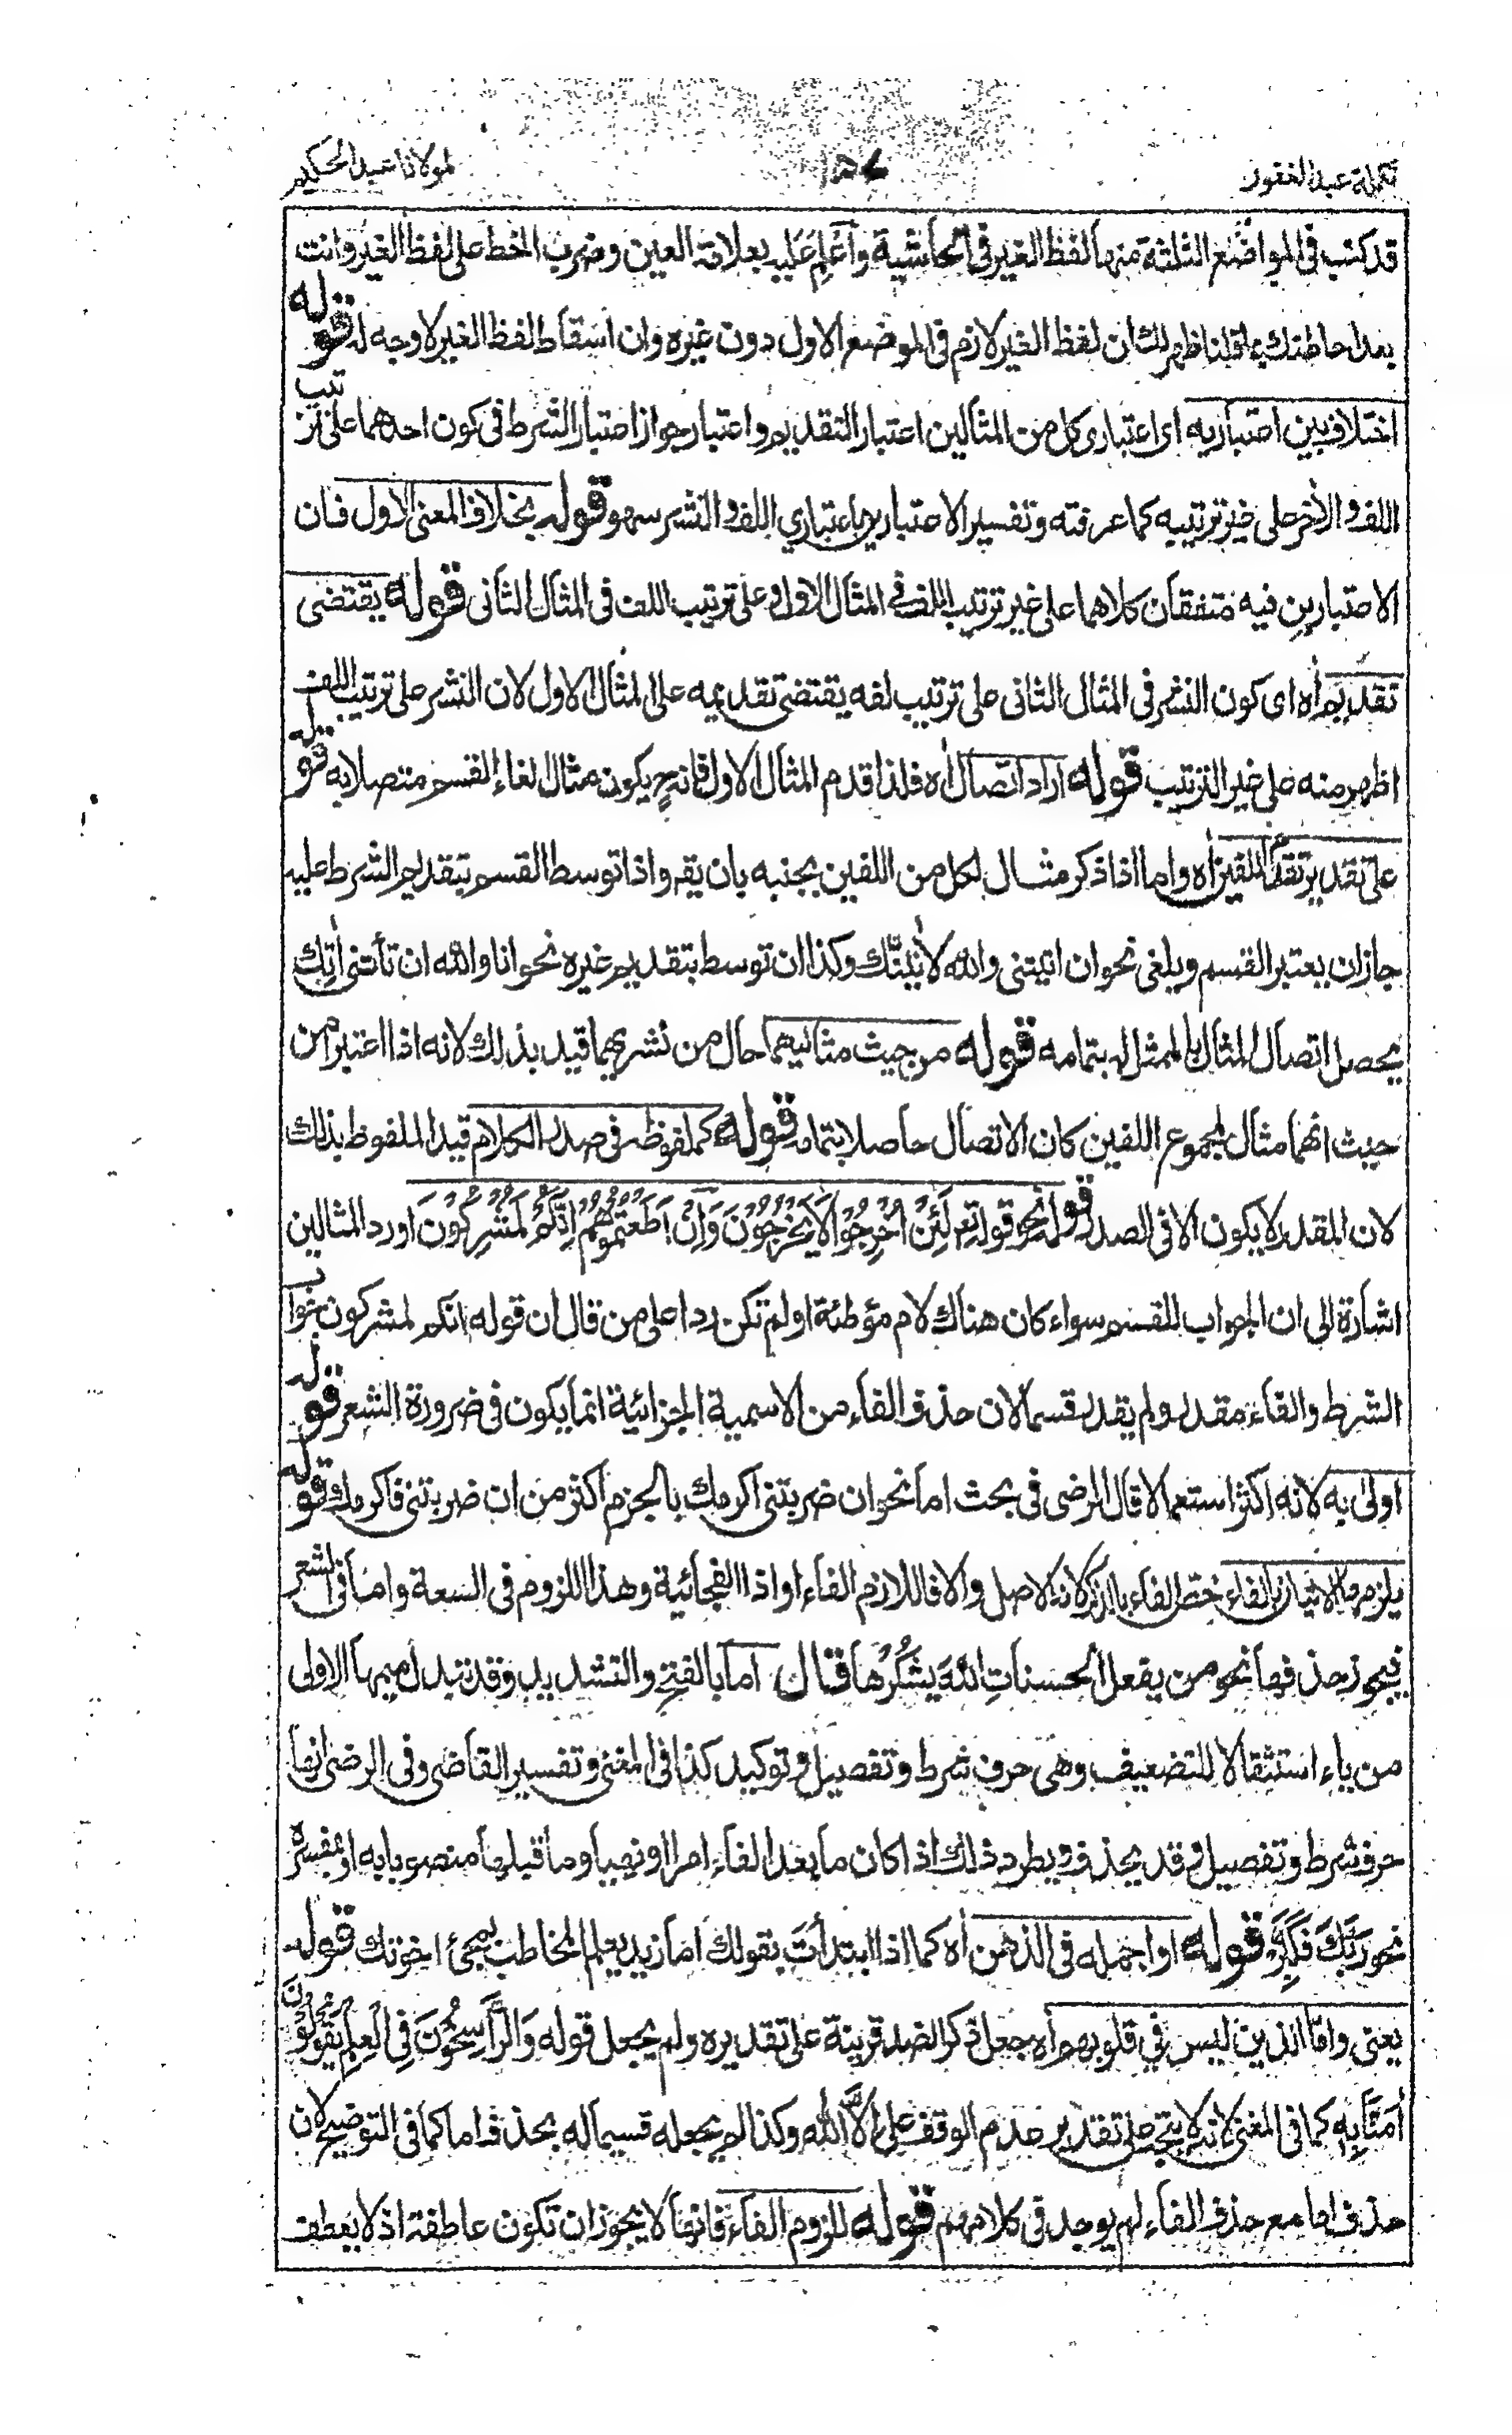 تكملة عبد الغفور
لمولانا عبد الحكيم
قد كتب في المواضع الثلثة منها لفظ الغير في الحاشية واعلم عليه بعلاقة العين وضرب الخط على لفظ الغير وانت
بعد احاطتك بما قلنا ظهر لك ان لفظ الغير لازم في الموضع الاول دون غيره وان اسقاط لفظ الغير لا وجه له قوله
اختلاف بين اعتباريه اى اعتبارى كل من المثالين اعتبار التقديم واعتبار جواز اعتبار الشرط فى كون احدهما على ترتيب
اللف والأخر على غير ترتيبه كما عرفته وتفسير الاعتبارين باعتباري اللف والنشر سهو قوله بخلاف المعنى الاول فان
الاعتبارين فيه متفقان كلاهما على غير ترتيب اللف في المثال الاول وعلى ترتيب اللف فى المثال الثانى قوله يقتضى
تقديم أه اى كون النشر فى المثال الثانى على ترتيب لفه يقتضى تقديمه على المثال الاول لان النشر على ترتيب اللف
اظهر منه على غير الترتيب قوله اراد اتصال أه فلذا قدم المثال الاول فانه ح يكون مثال الغاء القسم متصلا به قوله
على تقدير تقدم اللفين أه واما اذا ذكر مثال لكل من اللفين بجنبه بان يقه واذا توسط القسم بتقديم الشرط عليه
جاز ان يعتبر القسم ويلغى نحو ان اتيتنى والله لأتينك وكذا ان توسط بتقديم غيره نحو انا والله ان تأتنى أتك
يحصل اتصال المثال بالممثل له بتمامه قوله من حيث مثاليهما حال من نشريهما قيد بذلك لانه اذا اعتبر من
حيث انهما مثال لمجموع اللفين كان الاتصال حاصلا بتمامه قوله كملفوظ في صدر الكلام قيد الملفوظ بذلك
لان المقدر لا يكون الا فى الصدر قوله نحو قوله تع لَئِنْ اُخْرِجُوْا لَا يَخْرُجُوْنَ وَاِنْ اَطَعْتُمُوْهُمْ اِنَّكُمْ لَمُشْرِكُوْنَ اورد المثالين
اشارة الى ان الجواب للقسم سواء كان هناك لام مؤطئة او لم تكن ردا على من قال ان قوله انكم لمشركون جواب
الشرط والفاء مقدر ولم يقدر قسما لان حذف الفاء من الاسمية الجزائية انما يكون فى ضرورة الشعر قوله
اولى به لانه اكثر استعمالا قال الرضى فى بحث اما نحو ان ضربتنى اكرمك بالجزم اكثر من ان ضربتنى فاكرمك قوله
يلزمها الاتيان بالفاء خص الفاء بالذكر لانه الاصل والا فاللازم الفاء او اذا الفجائية وهذا اللزوم فى السعة واما فى الشعر
فيجوز حذفها نحو من يفعل الحسنات الله يشكرها قال اما بالفتح والتشديد وقد تبدل ميمها الاولى
من ياء استثقالا للتضعيف وهى حرف شرط وتفصيل وتوكيد كذا فى المغنى وتفسير القاضى وفى الرضى انها
حرف شرط وتفصيل وقد يحذف ويطرد ذلك اذا كان ما بعد الفاء امرا او نهيا وما قبلها منصوبا به او بمفسره
نحو رَبَّكَ فَكَبِّرْ قوله او اجمله فى الذهن أه كما اذا ابتدأت بقولك اما زيد يعلم المخاطب بمجئ اخوتك قوله
يعنى واما الذين ليس في قلوبهم أه جعل ذكر الضد قرينة على تقديره ولم يجعل قوله وَالرَّاسِخُوْنَ فِي الْعِلْمِ يَقُوْلُوْنَ
اٰمَنَّا بِهٖ كما فى المغنى لانه لا يتجه على تقدير عدم الوقف على الا الله وكذا لم يجعله قسيما له بحذف اما كما فى التوضيح لان
حذف اما مع حذف الفاء لم يوجد فى كلامهم قوله للزوم الفاء فانها لا يجوز ان تكون عاطفة اذ لا يعطف